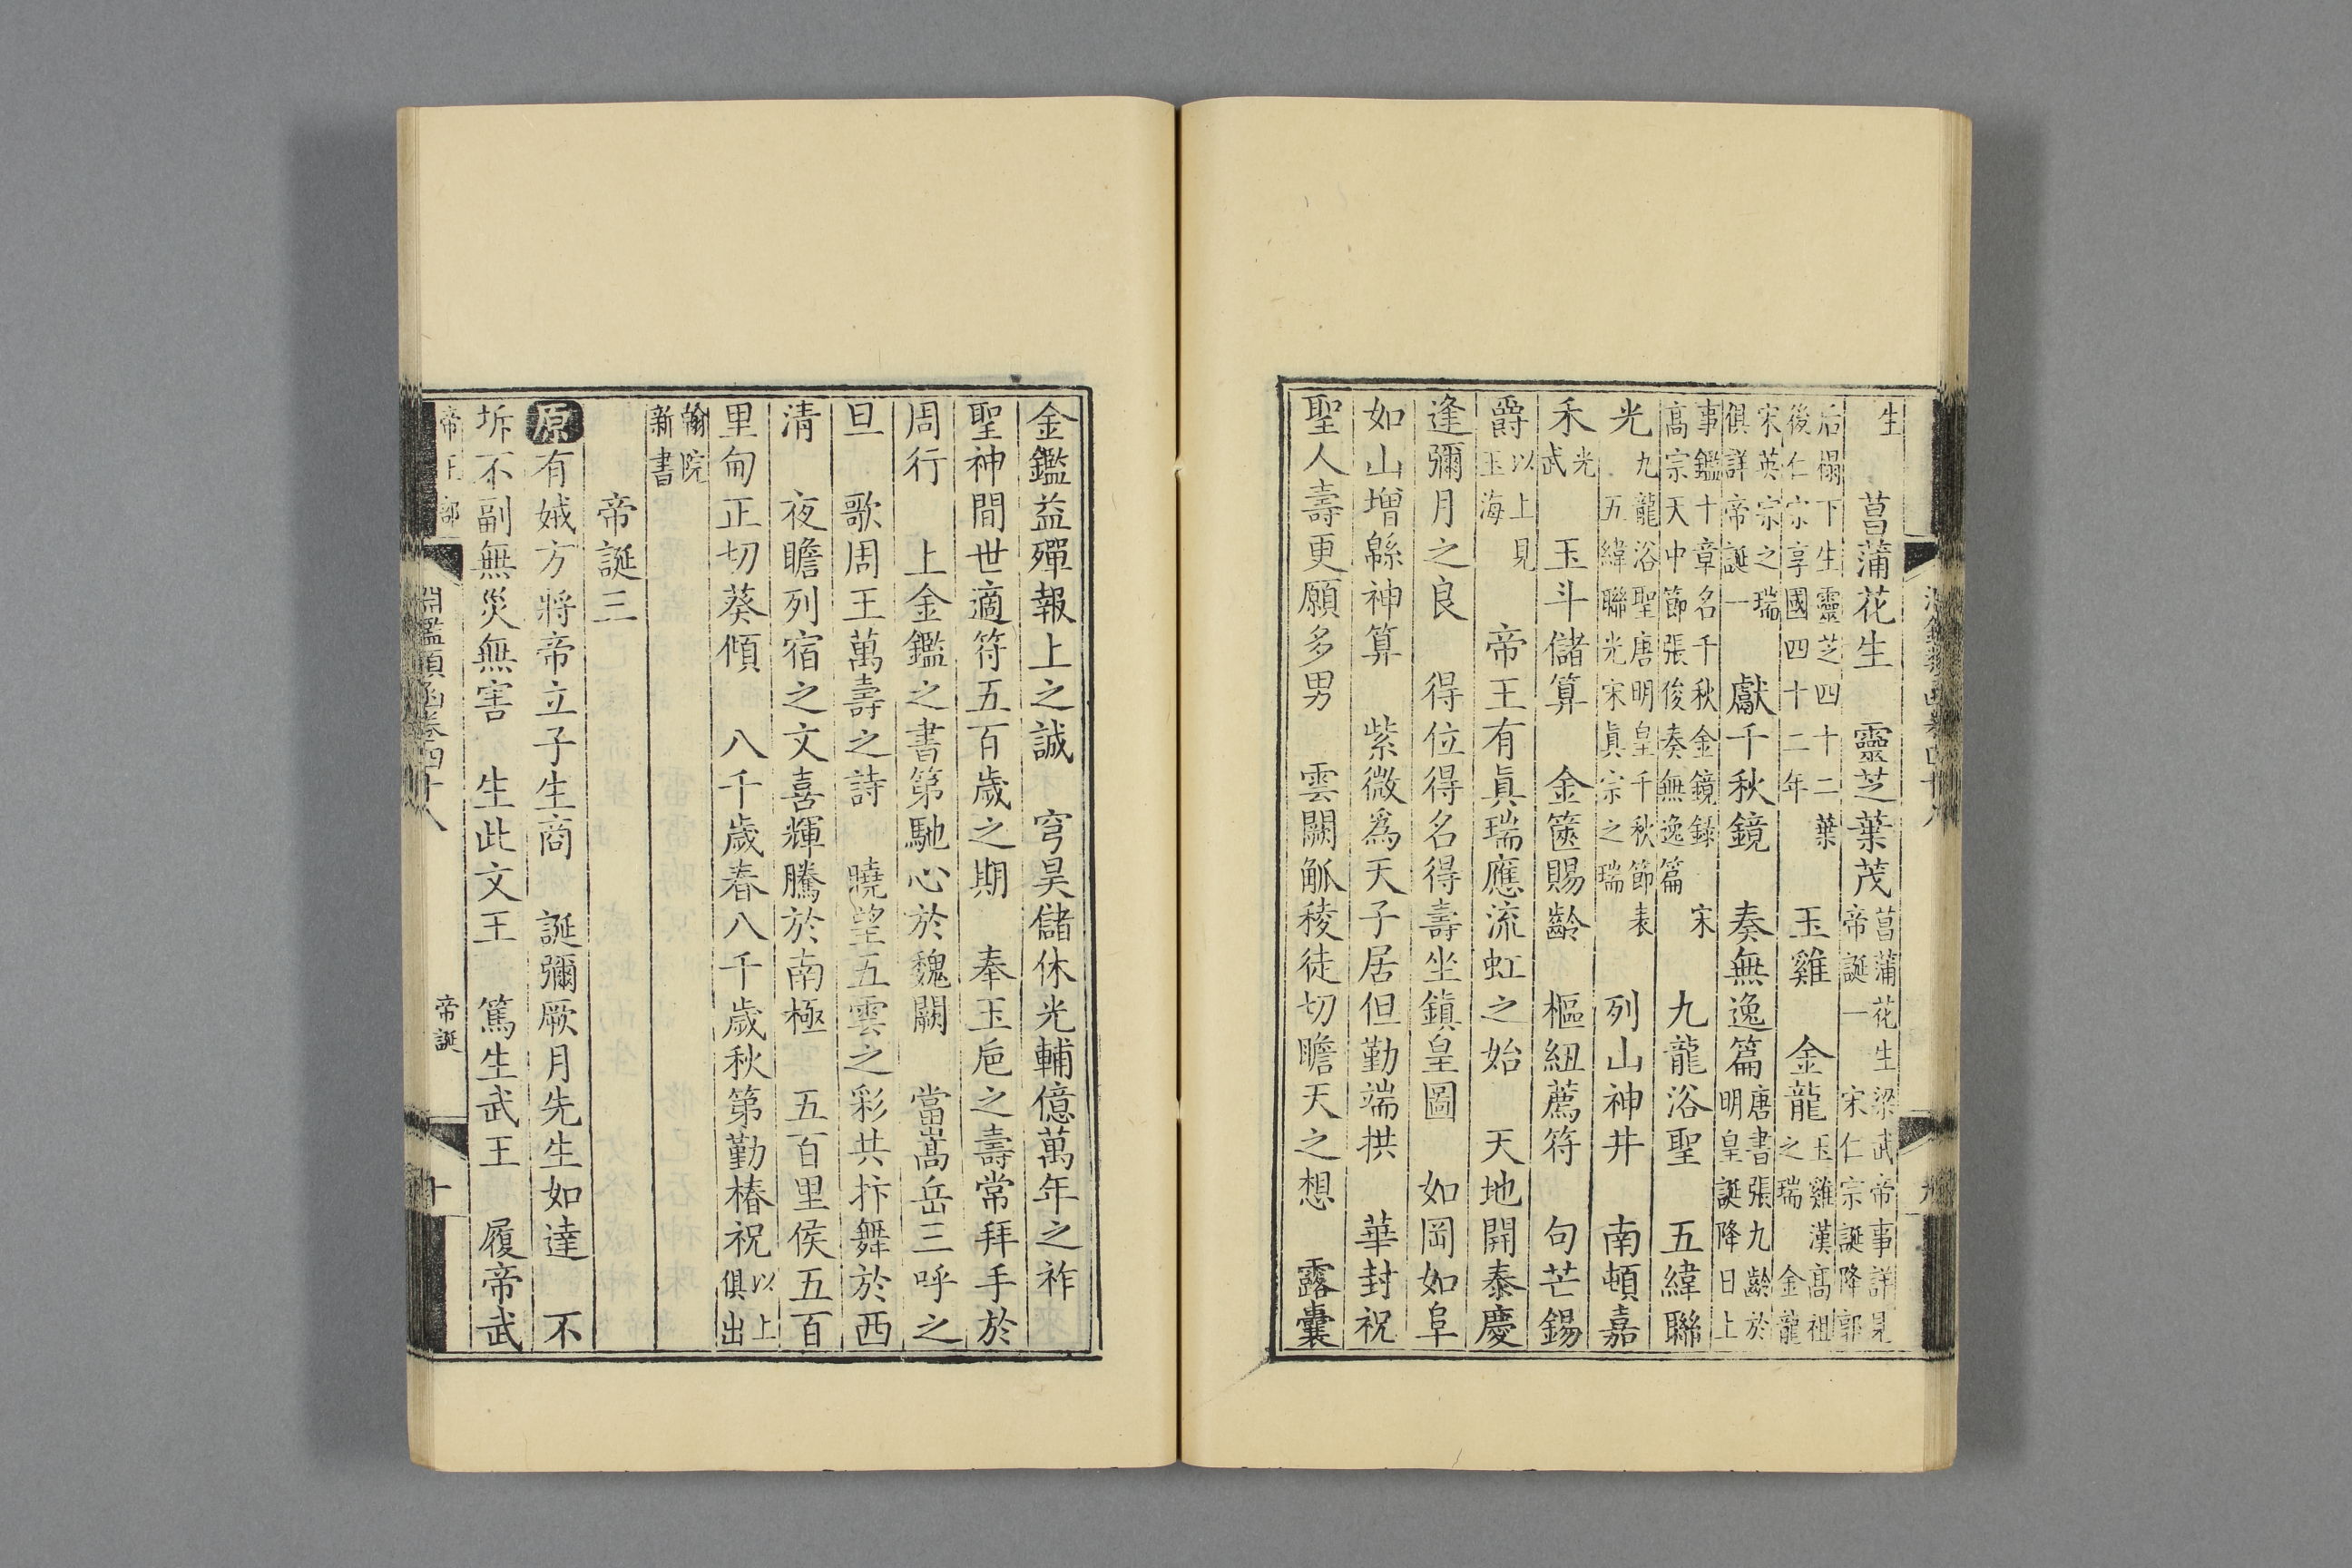 淵鑑類函卷四十八 九
生 菖蒲花生 靈芝葉茂 菖蒲花生梁武帝事詳見帝誕一 宋仁宗誕降郭
后榻下生靈芝四十二葉後仁宗享國四十二年 玉雞 金龍 玉雞漢高祖之瑞 金龍
宋英宗之瑞俱詳帝誕一 獻千秋鏡 奏無逸篇 唐書張九齡於明皇誕降日上
事鑑十章名千秋金鏡錄 宋高宗天中節張俊奏無逸篇 九龍浴聖 五緯聯
光 九龍浴聖唐明皇千秋節表五緯聯光宋眞宗之瑞 列山神井 南頓嘉
禾 光武 玉斗儲算 金篋賜齡 樞紐薦符 句芒錫
爵 以上見玉海 帝王有眞瑞應流虹之始 天地開泰慶
逢彌月之良 得位得名得壽坐鎮皇圖 如岡如阜
如山增緜神算 紫微爲天子居但勤端拱 華封祝
聖人壽更願多男 雲闕觚稜徒切瞻天之想 露囊
金鑑益殫報上之誠 穹昊儲休光輔億萬年之祚
聖神間世適符五百歲之期 奉玉巵之壽常拜手於
周行 上金鑑之書第馳心於魏闕 當嵩岳三呼之
旦 歌周王萬壽之詩 曉望五雲之彩共抃舞於西
清 夜瞻列宿之文喜輝騰於南極 五百里侯五百
里甸正切葵傾 八千歲春八千歲秋第勤椿祝 以上俱出
翰院新書
帝誕三
原有娀方將帝立子生商 誕彌厥月先生如達 不
坼不副無災無害 生此文王 篤生武王 履帝武
帝王部 淵鑑類函卷四十八 帝誕 十